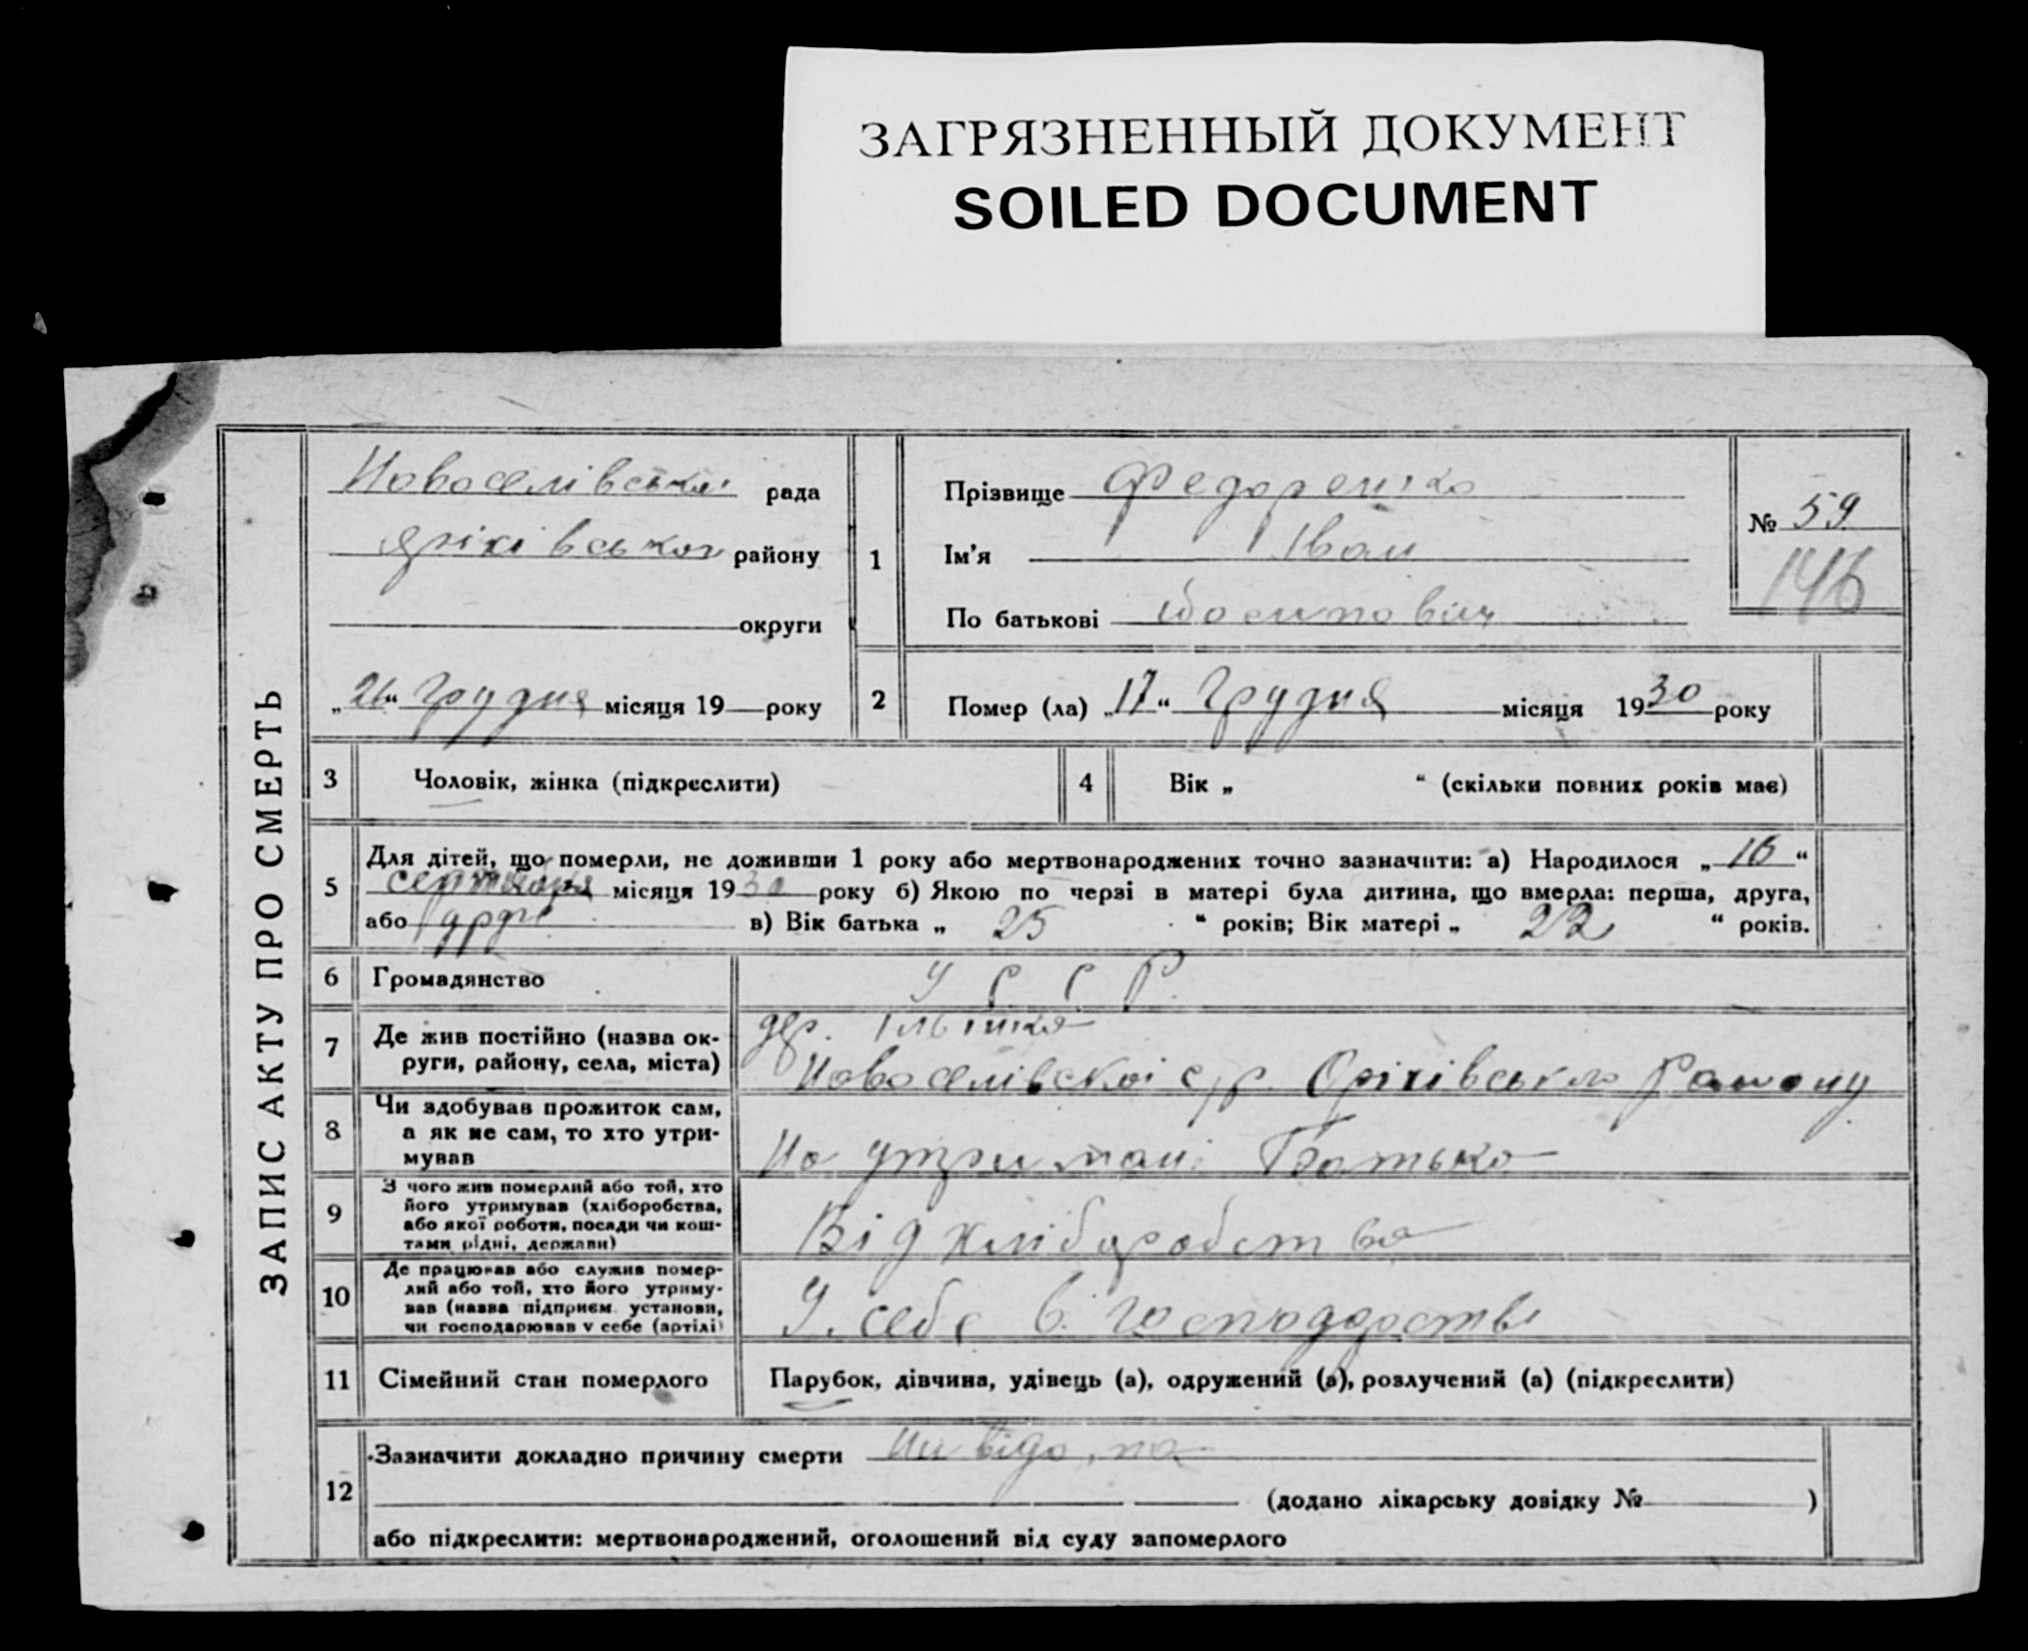 ЗАГРЯЗНЕННЫЙ ДОКУМЕНТ
SOILED DOCUMENT
ЗАПИС АКТУ ПРО СМЕРТЬ
Новоселівська рада
району
округи
„26“ Грудня місяця 19 року
1
Прізвище Федоренко
Ім'я Іван
По батькові
№ 59
146
2
Помер (ла) „17“ Грудня місяця 1930 року
3 Чоловік, жінка (підкреслити)
4 Вік „ “ (скільки повних років має)
5 Для дітей, що померли, не доживши 1 року або мертвонароджених точно зазначити: а) Народилося „16“
місяця 1930 року б) Якою по черзі в матері була дитина, що вмерла: перша, друга,
або в) Вік батька „ 25 “ років; Вік матері „ 22 “ років.
6 Громадянство У С С Р
7 Де жив постійно (назва ок-
руги, району, села, міста)
дер.
Новоселівскоі с/р. Оріхівсько Району
8 Чи здобував прожиток сам,
а як не сам, то хто утри-
мував
На утримані Батька
9 З чого жив померлий або той, хто
його утримував (хліборобства,
або якої роботи, посади чи кош-
тами рідні, держави)
Від хліборобства
10 Де працював або служив помер-
лий або той, хто його утриму-
вав (назва підприєм. установи,
чи господарював у себе (артілі)
У себе в господарстві
11 Сімейний стан померлого
Парубок, дівчина, удівець (а), одружений (а), розлучений (а) (підкреслити)
12 Зазначити докладно причину смерти
(додано лікарську довідку № )
або підкреслити: мертвонароджений, оголошений від суду запомерлого